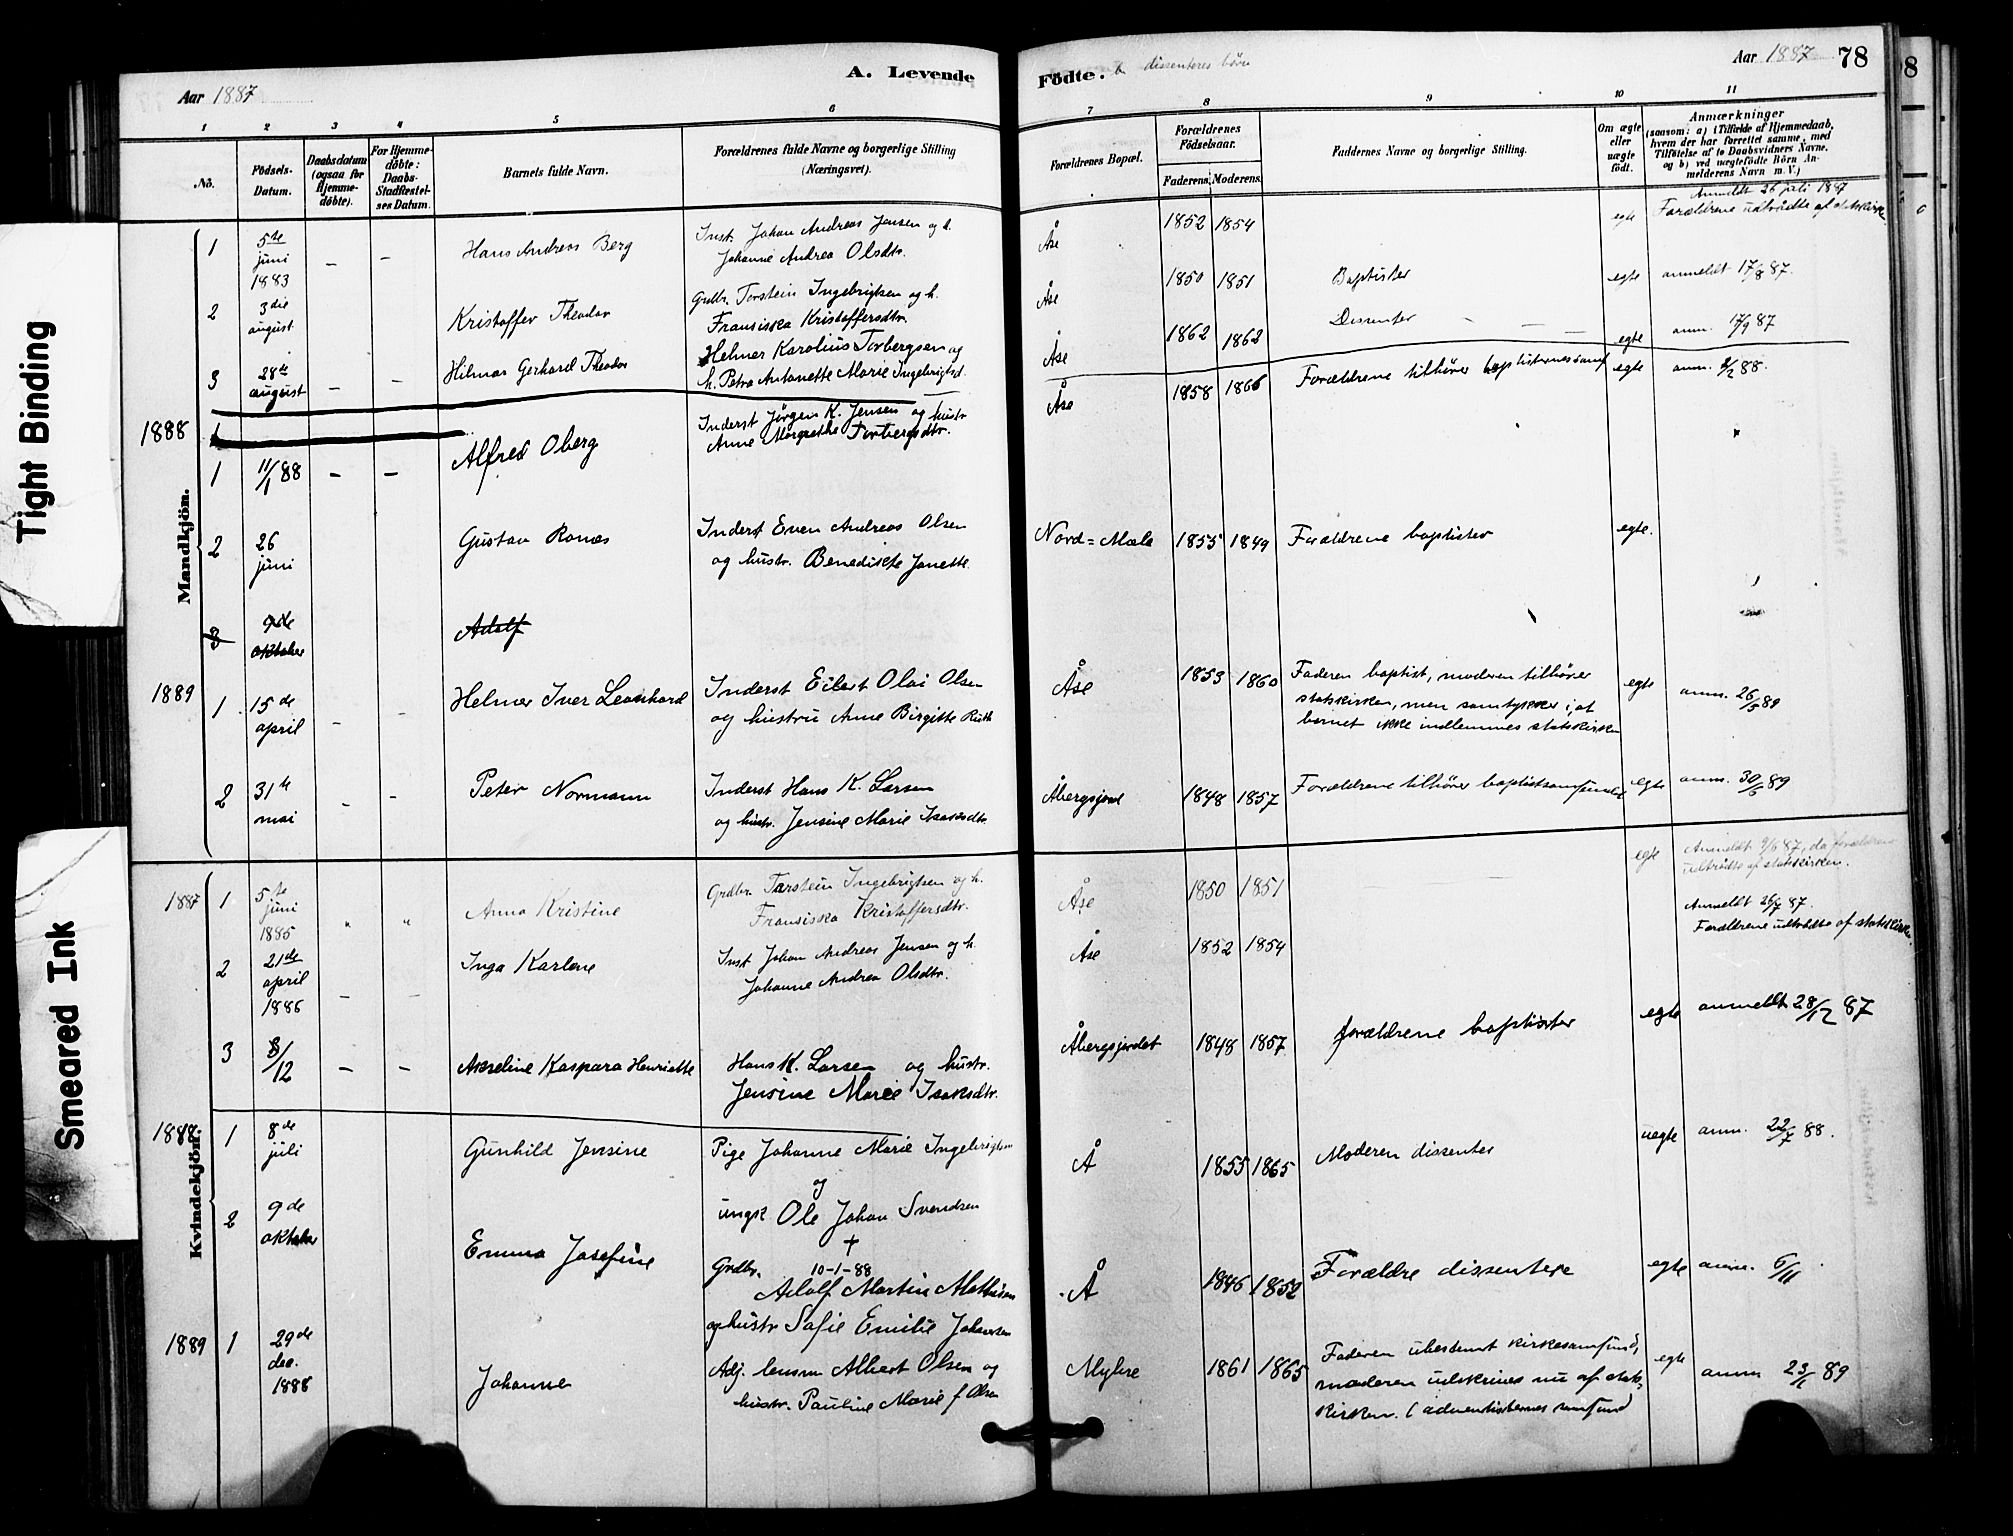 Tight Binding
Smeared Ink
Aar 1887
A. Levende
Födte. dissenteres börn
Aar 1887
78
1 2 3 4 5 6 7 8 9 10 11
No.
Födsels-
Datum.
Daabsdatum
(ogsaa for
Hjemme-
döbte).
For Hjemme-
döbte:
Daabs-
Stadfæstel-
ses Datum.
Barnets fulde Navn.
Forældrenes fulde Navne og borgerlige Stilling
(Næringsvei).
Forældrenes Bopæl.
Forældrenes
Födselsaar.
Faderens. Moderens.
Faddernes Navne og borgerlige Stilling.
Om ægte
eller
uægte
födt.
Anmærkninger
(saasom: a) i Tilfælde af Hjemmedaab,
hvem der har forrettet samme, med
Tilföielse af to Daabsvidners Navne,
og b) ved uægtefödte Börn An-
melderens Navn m. V.)
Mandkjön.
1 5te juni 1883 – – Hans Andreas Berg
Inst. Johan Andreas Jensen og h.
Johanne Andrea Olsdtr.
Åse 1852 1854 egte
Anmeldt 26 juli 1887
Forældrene udtrådte af statskirk
2 3die august Kristoffer Theodor
Grdbr. Torstein Ingebrigtsen og h.
Fransiska Kristoffersdtr.
Åse 1850 1851 Baptister egte anmeldt 17/8 87.
3 28de august – – Hilmar Gerhard Theodor
Helmer Karolius Torbergsen og
h. Petra Antonette Marie Ingebrigtsd.
Åse 1862 1862 Dissenter – – – egte anm. 17/9 87
1888
1 11/1 88 – – Alfred Oberg
Inderst Jörgen K. Jensen og hustr.
Anne Margrethe Torbergsdtr.
Åse 1858 1866 Forældrene tilhörer baptisternes samf egte anm. 2/2 88.
2 26 juni Gustav Ronæs
Inderst Even Andreas Olsen
og hustr. Benedikte Janette
Nord=Mæla 1855 1849 Forældrene baptister egte.
3 9de oktober Adolf
1889
1 15de april – – Helmer Iver Leonhard
Inderst Eilert Olai Olsen
og hustru Anne Birgitte Ruth
Åse 1853 1860 Faderen baptist, moderen tilhörer
statskirken, men samtykker i, at
barnet ikke indlemmes statskirken
egte anm. 26/5 89
2 31te mai – – Peter Normann
Inderst Hans K. Larsen
og hustr. Jensine Marie Isaksdtr.
Åbergsjord 1848 1857 Forældrene tilhörer baptistsamfundet egte anm. 30/6 89
Kvindekjön.
1887
1 5te juni 1885 " " Anna Kristine
Grdbr. Torstein Ingebrigtsen og h.
Fransiska Kristoffersdtr.
Åse 1850 1851 egte
udtrådte af statskirken.
2 21de april 1886 – – Inga Karlene
Inst Johan Andreas Jensen og h.
Johanne Andrea Olsdtr.
Åse 1852 1854
Anmeldt 26/7 87.
Forældrene udtrådte af statskirken
3 8/12 – – Akseline Kaspara Henriette
Hans K. Larsen og hustr.
Jensine Marie Isaksdtr.
Åbergsjordet 1848 1857 forældrene baptister egte anmeldt 28/12 87
1888
1 8de juli Gunhild Jensine
Pige Johanne Marie Ingebrigtsen
og
ungk Ole Johan Svendsen
Å 1855 1865 Moderen dissenter uegte anm. 22/7 88.
2 9de oktober Emma Josefine
†
Grdbr. 10-1-88
Adolf Martin Mathisen
og hustr Sofie Emilie Johansen
Å 1846 1852 Forældre dissentere egte anm. 6/11
1889
1 29de dec. 1888 Johanne
Adj. lensm Albert Olsen og
hustr. Pauline Marie f Olsen
Myhre 1861 1865 Faderen ubestemt kirkesamfund,
moderen udskrives nu af stats-
kirken. (adventisternes samfund)
egte anm 23/1 89